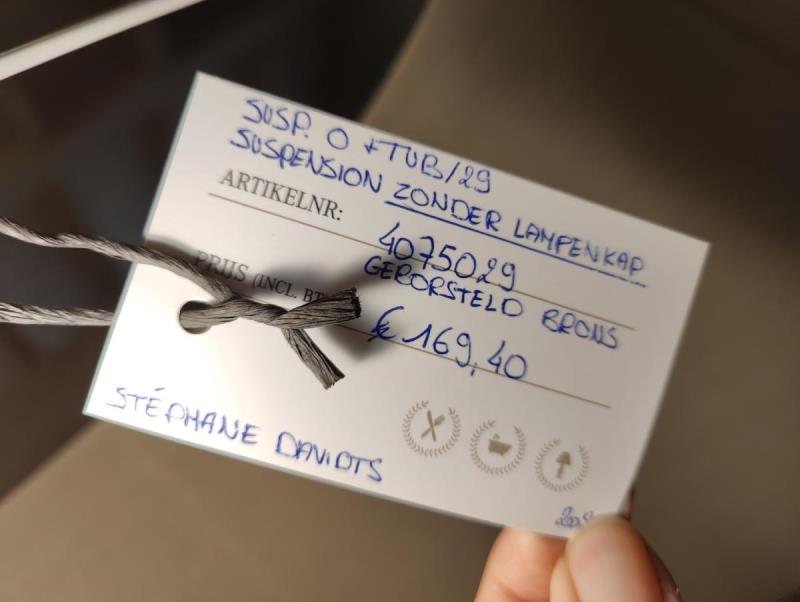 SUSP. O + TUB/29
SUSPENSION ZONDER LAMPENKAP
ARTIKELNR: 4075029
GEBORSTELD BRONS
PRIJS (INCL. € 169,40
STÉPHANE DAVIDTS